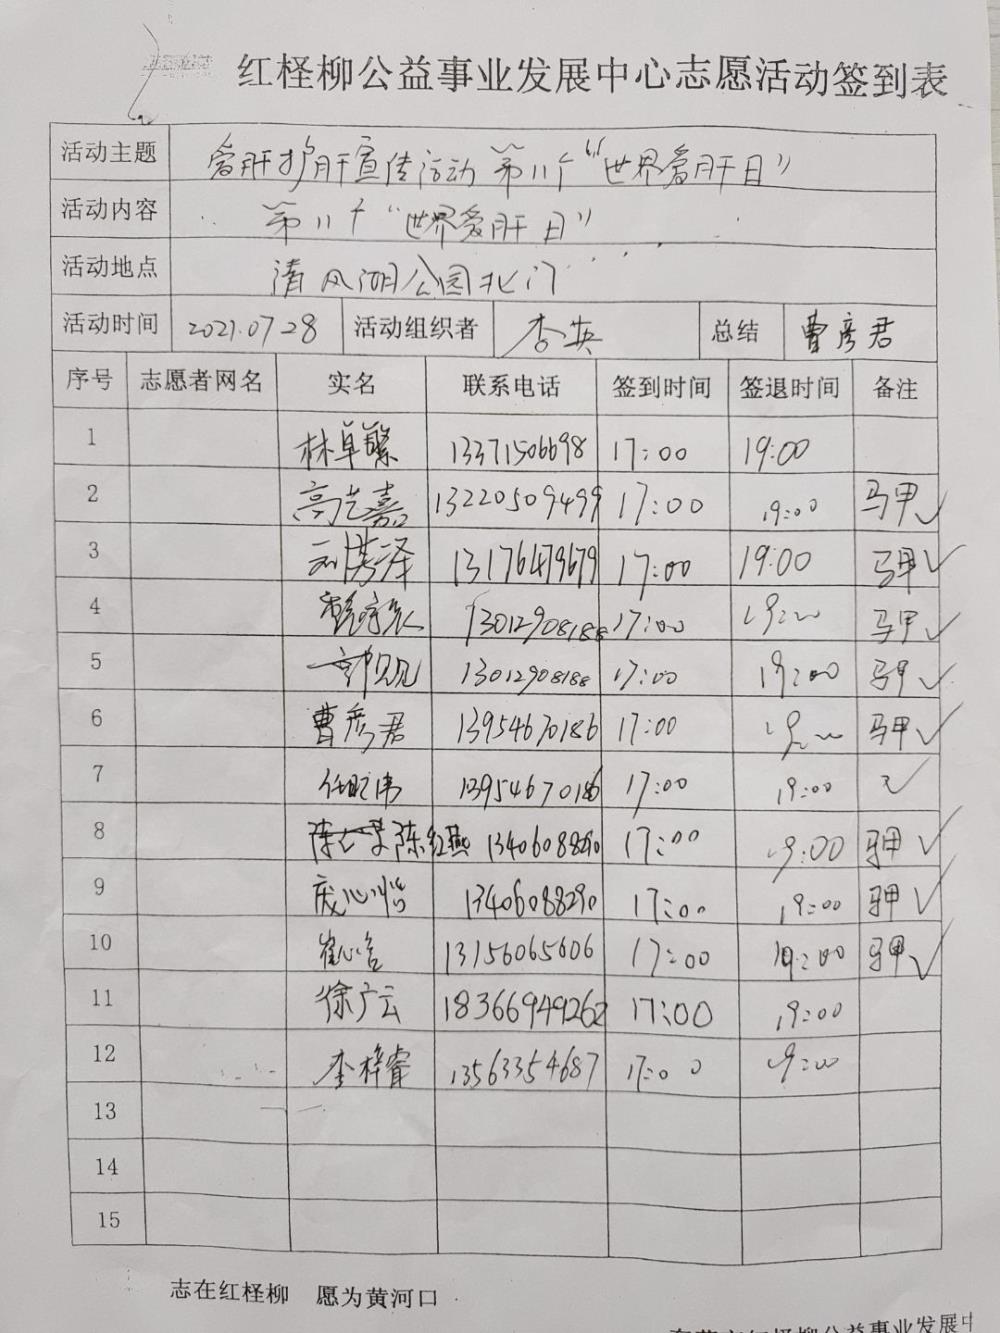 红柽柳公益事业发展中心志愿活动签到表
活动主题 爱肝护肝宣传活动 第11个“世界爱肝日”
活动内容 第11个“世界爱肝日”
活动地点 清风湖公园北门
活动时间 2021.07.28 活动组织者 李英 总结 曹彦君
序号 志愿者网名 实名 联系电话 签到时间 签退时间 备注
1 林卓繁 13371506698 17:00 19:00
2 高艺嘉 13220509499 17:00 19:00 马甲✓
3 刘洪泽 13176479679 17:00 19:00 马甲✓
4 13012908188 17:00 19:00 马甲✓
5 13012908188 17:00 19:00 马甲✓
6 曹彦君 13954670186 17:00 19:00 马甲✓
7 13954670186 17:00 19:00 ✓
8 陈红燕 13406088290 17:00 19:00 马甲✓
9 庞心怡 13406088290 17:00 19:00 马甲✓
10 崔心 13156065606 17:00 19:00 马甲✓
11 徐广云 18366949262 17:00 19:00
12 李梓睿 13563354687 17:00 19:00
13
14
15
志在红柽柳 愿为黄河口
红柽柳公益事业发展中